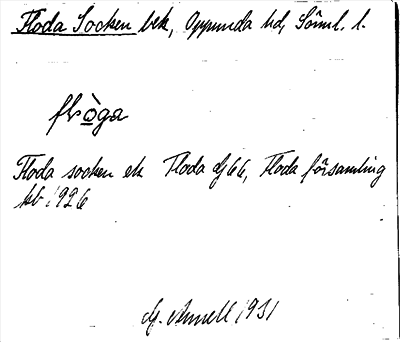 Floda Socken bek, Oppunda hd, Söml. l.
flò̱ga
Floda socken ek Floda Gf 66, Floda församling
kb 1926
G. Annell 1931